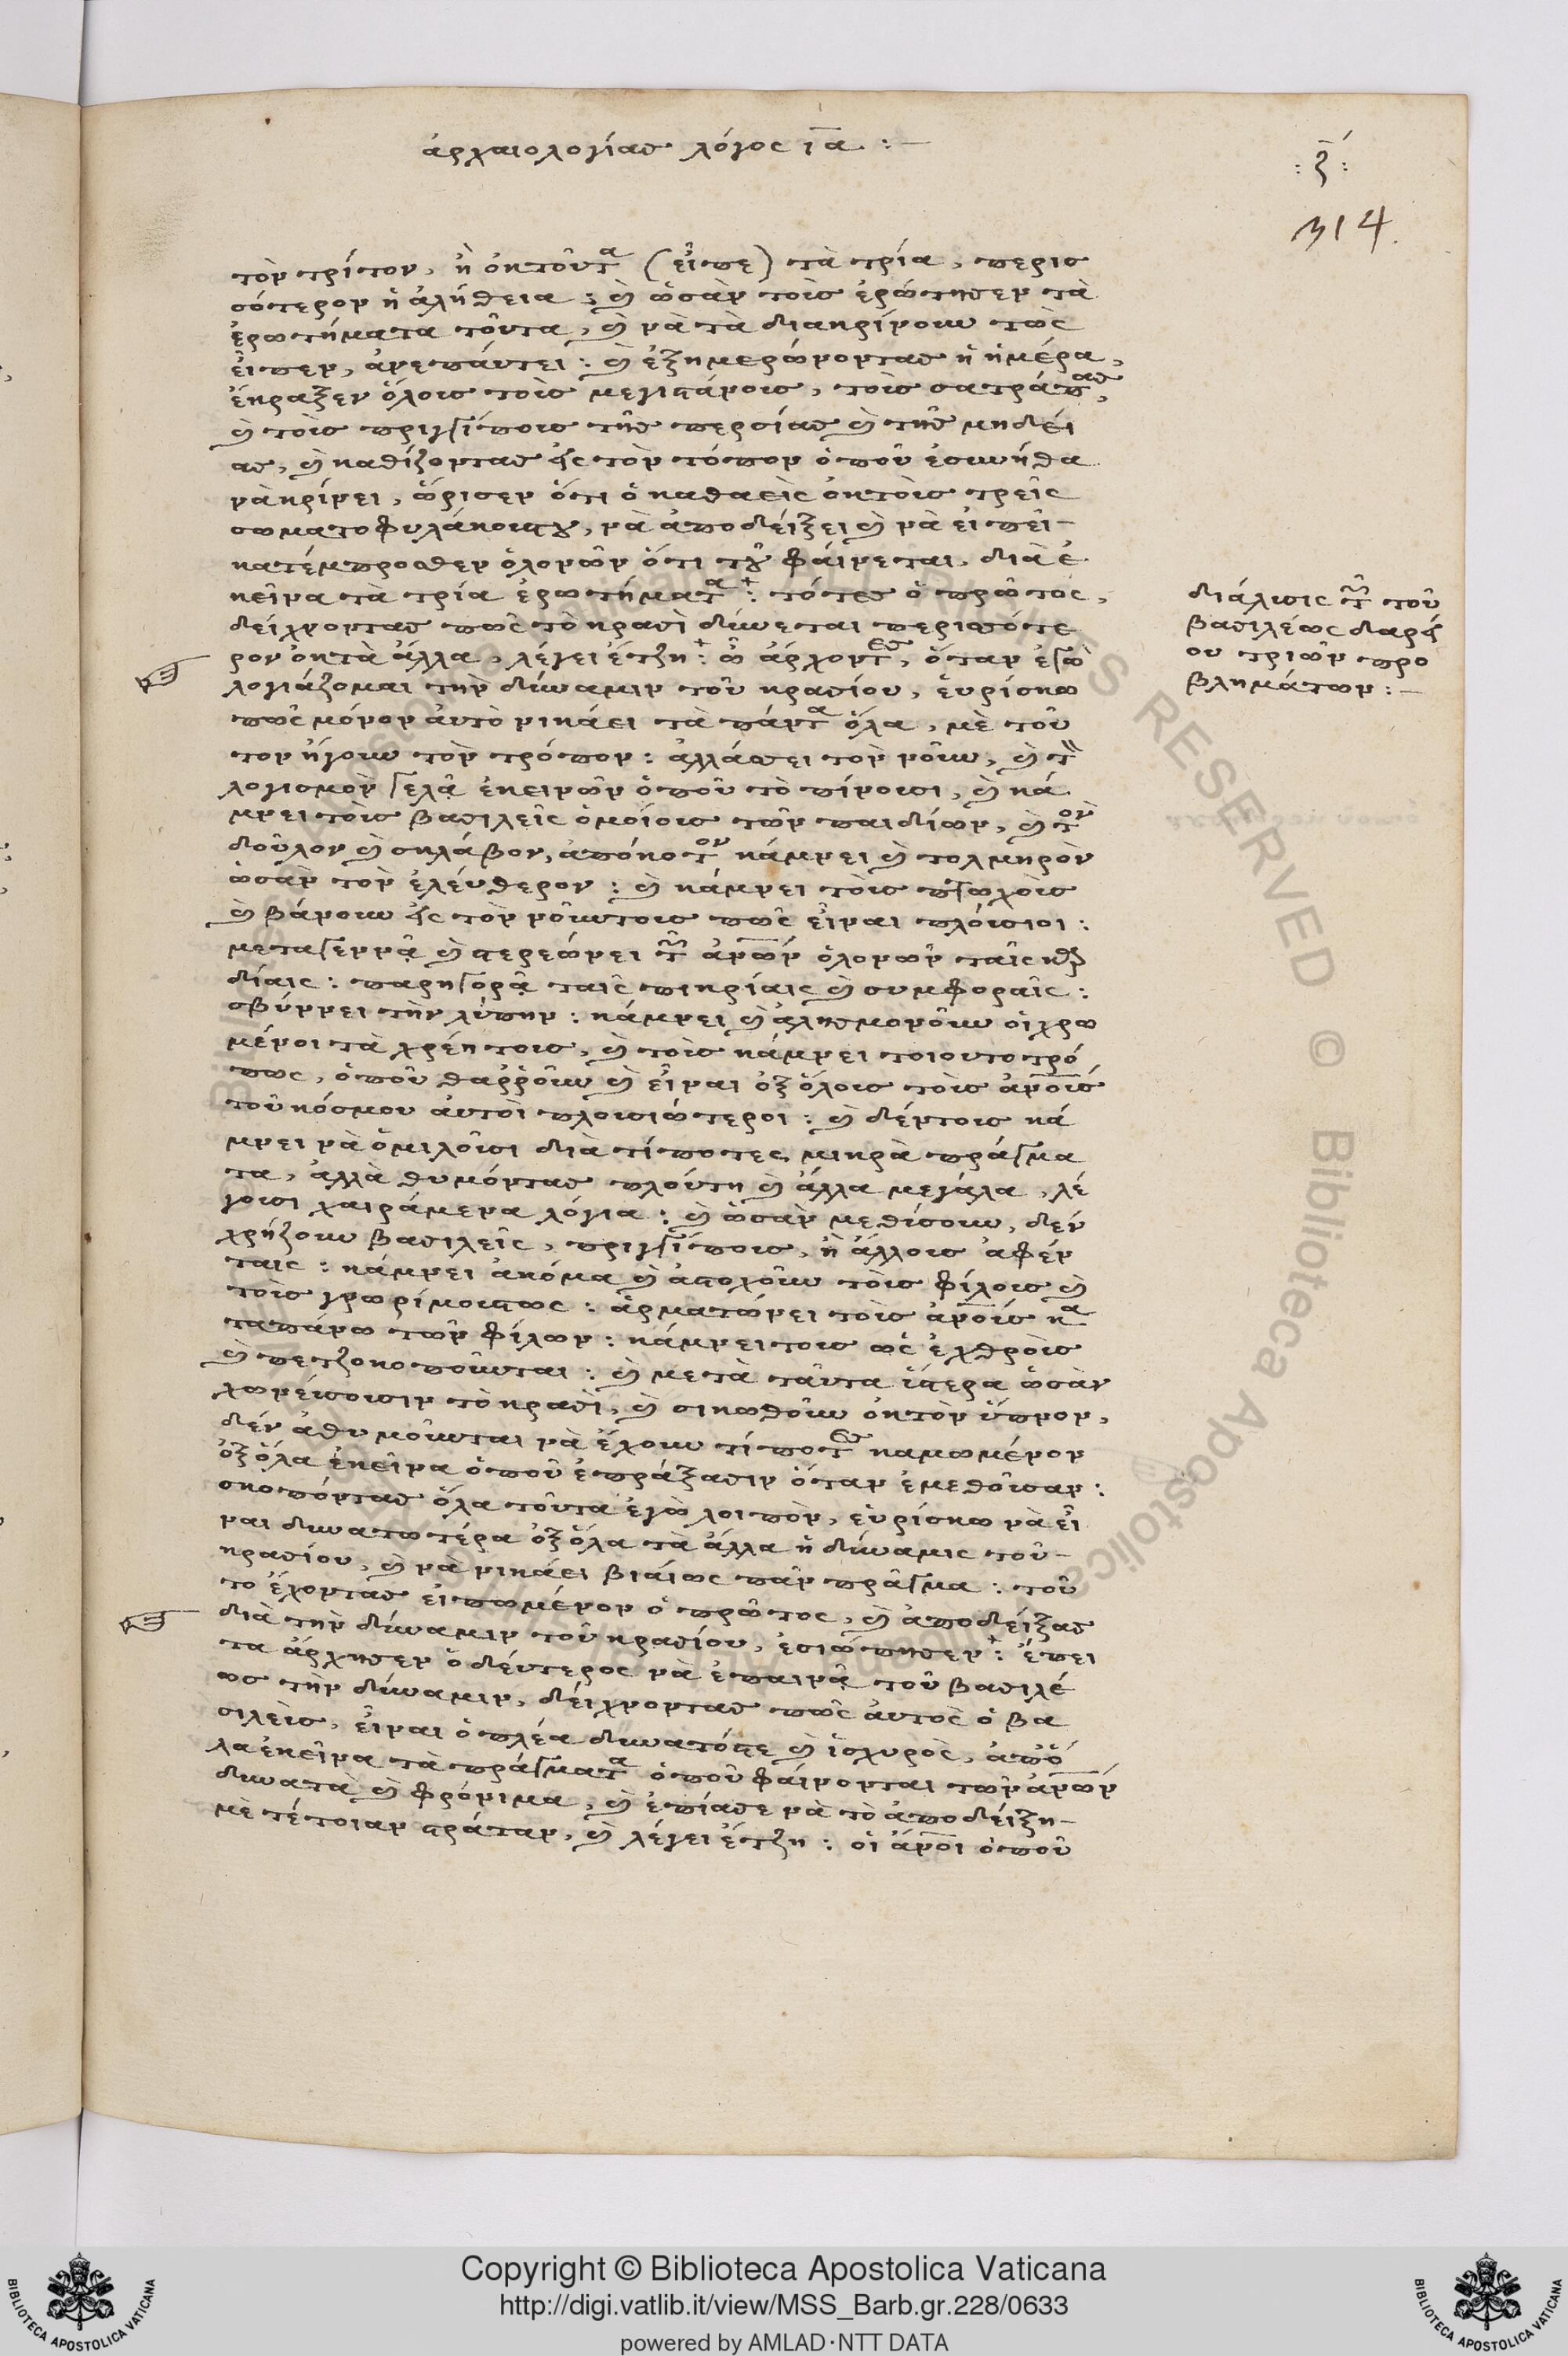 ἀρχαιολογίας λόγος ια :—
: ξ :
314.
τὸν τρίτον, ἢ ὀκτοῦτα (εἶπε) τὰ τρία, περισ
σότερον ἡ ἀλήθεια : καὶ ὡσὰν τοὺς ἐρώτησεν τὰ
ἐρωτήματα τοῦτα, καὶ νὰ τὰ διακρίνουν τὼς
εἶπεν, ἀνεπάντει : καὶ ἐξημερώνοντας ἡ ἡμέρα,
ἔκραξεν ὅλους τοὺς μεγιστάνους, τοὺς σατράπας,
καὶ τοὺς πριγγίπους τῆς περσίας καὶ τῆς μηδεί
ας, καὶ καθίζοντας εἰς τὸν τόπον ὁποῦ ἐσυνήθα
νὰ κρίνει, ὥρισεν ὅτι ὁ καθαεὶς ὀκτοὺς τρεῖς
σωματοφυλάκους του, νὰ ἀποδείξει καὶ νὰ εἰπεῖ-
κατέμπροσθεν ὁλονῶν ὅτι τοῦ φαίνεται, διὰ ἐ
κεῖνα τὰ τρία ἐρωτήματα : τότες ὁ πρῶτος,
δείχνοντας πῶς τὸ κρασὶ δύνεται περισσότε
ρον ὀκτὰ ἄλλα, λέγει ἔτζη : ὦ ἄρχοντες, ὅταν ἐγὼ
λογιάζομαι τὴν δύναμιν τοῦ κρασίου, εὑρίσκω
πῶς μόνον αὐτὸ νικάει τὰ πάντα ὅλα, μὲ τοῦ
τον ἤγουν τὸν τρόπον : ἀλλάσσει τὸν νοῦν, καὶ τὸν
λογισμὸν γελᾷ ἐκεινῶν ὁποῦ τὸ πίνουσι, καὶ κά
μνει τοὺς βασιλεῖς ὁμοίους τῶν παιδίων, καὶ τὸν
δοῦλον καὶ σκλάβον, ἀπόκοτον κάμνει καὶ τολμηρὸν
ὡσὰν τὸν ἐλεύθερον : καὶ κάμνει τοὺς πτωχοὺς
καὶ βάνουν εἰς τὸν νοῦν τους πῶς εἶναι πλούσιοι :
μεταγερνᾷ καὶ στερεώνει τῶν ἀνων ὁλονῶν ταῖς καρ
δίαις : παρηγορᾷ ταῖς πικρίαις καὶ συμφοραῖς :
σβύννει τὴν λύπην : κάμνει καὶ ἀλησμονοῦν οἱ χρω
μένοι τὰ χρέη τους, καὶ τοὺς κάμνει τοιουτοτρό
πως, ὁποῦ θαῤῥοῦν καὶ εἶναι ὀξ ὅλους τοὺς ἀνους
τοῦ κόσμου αὐτοὶ πλουσιώτεροι : καὶ δέν τους κά
μνει νὰ ὁμιλοῦσι διὰ τίποτες μικρὰ πράγμα
τα, ἀλλὰ θυμόντας πλούτη καὶ ἄλλα μεγάλα, λέ
γουσι χαιράμενα λόγια : καὶ ὡσὰν μεθίσουν, δὲν
χρήζουν βασιλεῖς, πριγγίπους, ἢ ἄλλους ἀφέν
ταις : κάμνει ἀκόμα καὶ ἀστοχοῦν τοὺς φίλους καὶ
τοὺς γνωρίμους τως : ἁρματώνει τοὺς ἀνους κα
ταπάνω τῶν φίλων : κάμνει τους ὡς ἐχθροὺς
καὶ πετζοκοποῦνται : καὶ μετὰ ταῦτα ὕστερα ὡσὰν
χωνεύσουσιν τὸ κρασὶ, καὶ σικωθοῦν ὀκτὸν ὕπνον,
δὲν ἀθυμοῦνται νὰ ἔχουν τίποτες καμωμένον
ὀξ ὅλα ἐκεῖνα ὁποῦ ἐπράξασιν ὅταν ἐμεθοῦσαν :
σκοπόντας ὅλα τοῦτα ἐγὼ λοιπὸν, εὑρίσκω νὰ εἶ
ναι δυνατωτέρα ὀξ ὅλα τὰ ἄλλα ἡ δύναμις τοῦ-
κρασίου, καὶ νὰ νικάει βιαίως πᾶν πρᾶγμα : τοῦ
το ἔχοντας εἰπωμένον ὁ πρῶτος, καὶ ἀποδείξας
διὰ τὴν δύναμιν τοῦ κρασίου, ἐσιώπησεν : ἔπει
τα ἄρχησεν ὁ δεύτερος νὰ ἐπαινᾷ τοῦ βασιλέ
ως τὴν δύναμιν, δείχνοντας πῶς αὐτὸς ὁ βα
σιλεὺς, εἶναι ὁ πλέα δυνατόστε καὶ ἰσχυρὸς, ἀπὸ ὅ
λα ἐκεῖνα τὰ πράγματα ὁποῦ φαίνονται τῶν ἀνων
δυνατὰ καὶ φρόνιμα, καὶ ἐπίασε νὰ τὸ ἀποδείξη-
μὲ τέτοιαν στράταν, καὶ λέγει ἔτζη : οἱ ἄνοι ὁποῦ
διάλυσις τῶν τοῦ
βασιλέως δαρεί
ου τριῶν προ
βλημάτων :—
Copyright © Biblioteca Apostolica Vaticana
http://digi.vatlib.it/view/MSS_Barb.gr.228/0633
powered by AMLAD·NTT DATA
BIBLIOTECA APOSTOLICA VATICANA
BIBLIOTECA APOSTOLICA VATICANA